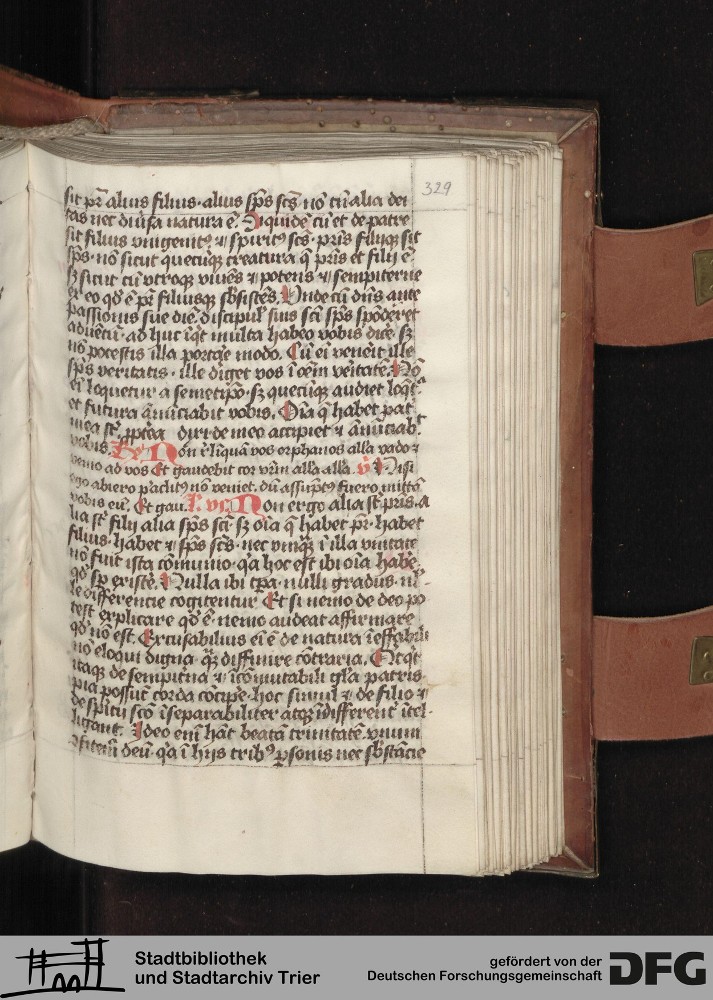 329
sit pr̄ alius filius · alius sp̄s scs̄ · nō tn̄ alia dei
tas nec diuisa natura ē. Siquidē cū et de patre
sit filius vnigenitꝰ ⁊ spiritꝰ scs̄ · pris̄ filiiqꝫ sit
sp̄s · nō sicut quecūqꝫ creatura q̄ pris̄ et filii ē
sꝫ sicut cū vtroqꝫ viuēs ⁊ potens ⁊ sempiterne
ex eo qd̄ ē pr̄ filiusqꝫ sb̄sistēs. Vnde cū dn̄s ante
passionis sue diē · discipulꝭ suis sci̅ sp̄s spōderet
aduētū · ad huc īqͥt multa habeo vobis dic̄e · sꝫ
nō potestis illa portare modo. Cū ei̅ veneīt ille
sp̄s veritatis · ille diriget vos ī oēm veitatē. Nō
ei̅ loquetur a semetip̄o · sꝫ quecūqꝫ audiet loqͣt̄
et futura ān̄uciabit vobis. Oīa q̄ habet pat̄
mea st̄ · ꝓpt̄ea dixi de meo accipiet ⁊ ān̄uciab̄
vobis. Re Non rl̄iquā vos orphanos all̄a vado ⁊
venio ad vos Et gaudebit cor vr̄m all̄a all̄a. v̄ Nisi
ego abiero paclitꝰ nō veniet · dū assūptꝰ fuero mittā
vobis eū. Et gau. L vc̄ Non ergo alia st̄ pris̄ · a
lia st̄ filii alia sp̄s sci̅ · sꝫ oīa q̄ habet pr̄ · habet
filius · habet ⁊ sp̄s scs̄ · nec vnqͣ ī illa vnitate
nō fuit ista cōmunio · qͣ hoc est ibi oīa habē
qd̄ sp̄ existē. Nulla ibi tpa̅ · nulli gradus · nl̄
le differencie cogitentur Et si nemo de deo po
test explicare qd̄ ē · nemo audeat affirmare
qd̄ nō est. Excusabilius ei̅ ē de natura īeffabili
nō eloqui digna · qꝫ diffinire cōtraria. Qͥcqͥt
itaqꝫ de sempit̄na ⁊ īcōmutabili gl̄a patris
pia possūt corda cōcipe · hoc simul ⁊ de filio ⁊
de spiritu scō īseparabiliter atqꝫ īdifferent̄ ītel
ligant. Ideo eni̅ hāc beatā trinitatē vnum
ꝯfitem̄ deū · qͣ ī hiis tribꝰ ꝑsonis nec sb̄stācie
Stadtbibliothek
und Stadtarchiv Trier
gefördert von der
Deutschen Forschungsgemeinschaft
DFG